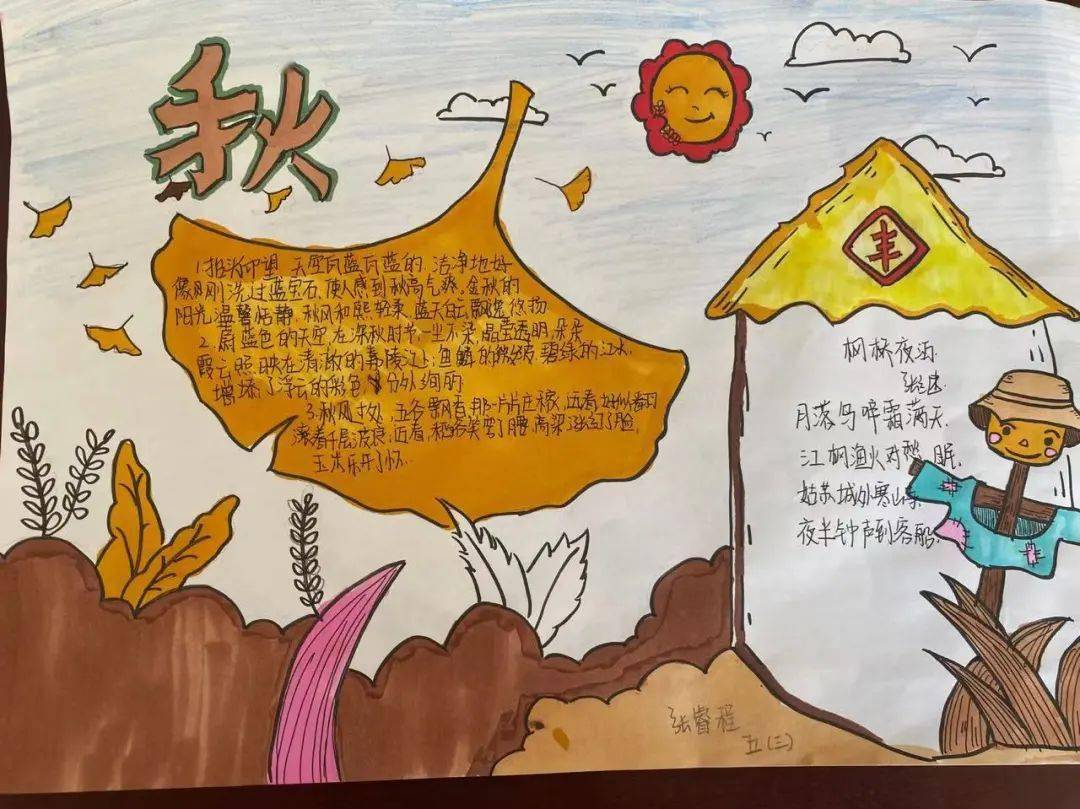 秋
1.抬头仰望,天空瓦蓝瓦蓝的,洁净地好
像刚刚洗过蓝宝石,使人感到秋高气爽。金秋的
阳光温馨恬静,秋风和熙轻柔,蓝天白云飘逸悠扬
2.蔚蓝色的天空,在深秋时节,一尘不染,晶莹透明。朵朵
霞云照映在清澈的嘉陵江上;鱼鳞的微波,碧绿的江水,
增添了浮云的彩色,分外绚丽
3.秋风起处,五谷飘香,那一片片庄稼,远看好似
滚着千层波良,近看,稻谷笑弯了腰,高粱涨红了脸,
玉米乐开了怀.
丰
枫桥夜泊
张继
月落乌啼霜满天
江枫渔火对愁眠.
姑苏城外寒山寺.
夜半钟声到客船.
张睿程
五(三)